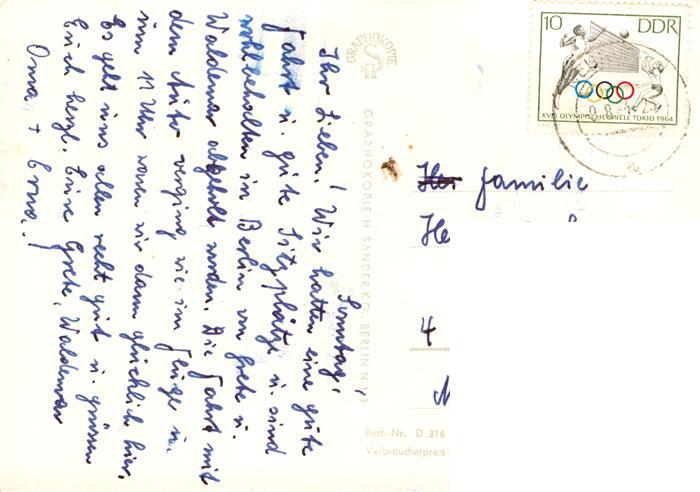 Sonntag,
Ihr Lieben! Wir hatten eine gute
Fahrt u. gute Sitzplätze u. sind
wohlbehalten in Berlin von Grete u.
Waldemar abgeholt worden. Die Fahrt mit
dem Auto verging wie im Fluge u.
um 11 Uhr waren wir dann glücklich hier.
Es geht uns allen recht gut u. grüssen
Euch herzl. Eure Grete, Waldemar
Oma, + Erna.!
GRAPHOKOPIE
GRAPHOKOPIE H. SANDER K.G. BERLIN N 113
10 DDR
XVIII. OLYMPISCHE SPIELE TOKIO 1964
Familie
He
4
Best.-Nr. D 316
Verbraucherpreis